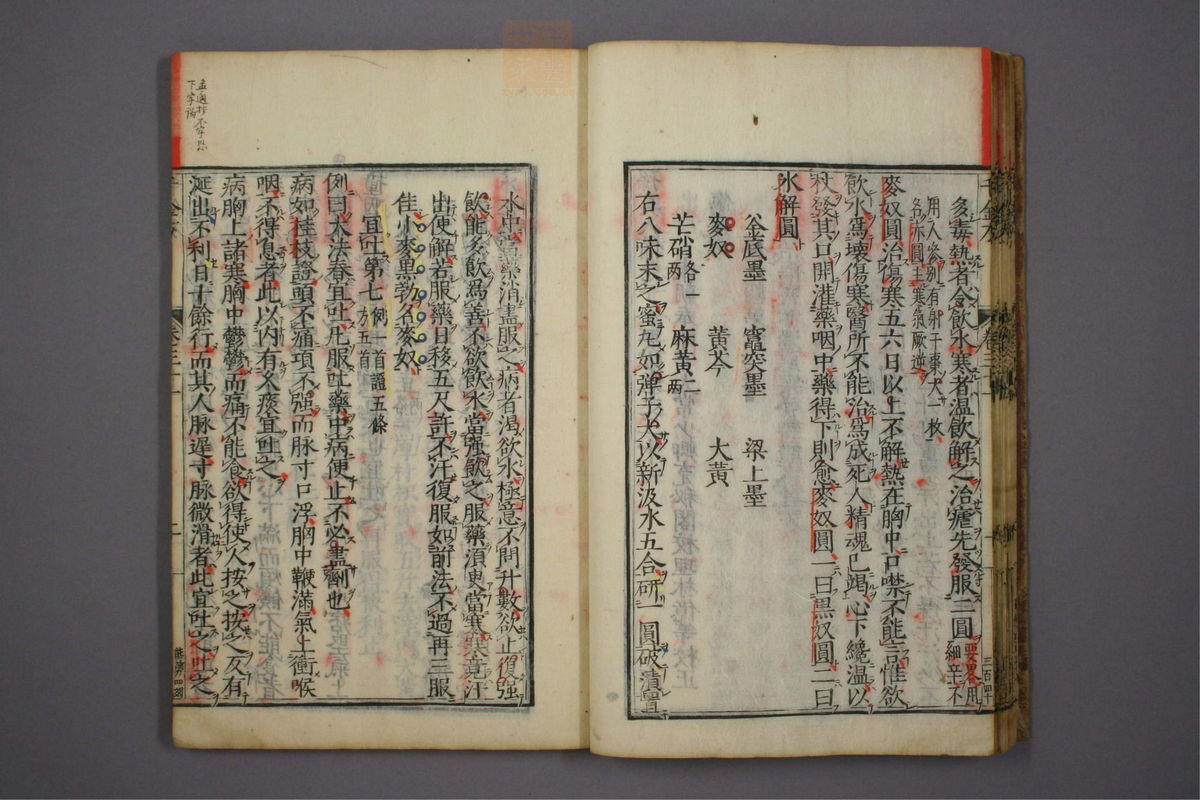 多毒熱者令飲水寒者溫飲解之治瘧先發服二圓要畧用細辛不
用人參別有射干棗大一枚
名赤圓主寒氣厥逆
麥奴圓治傷寒五六日以上不解熱在胸中口噤不能言惟欲
飲水爲壞傷寒醫所不能治爲成死人精魂已竭心下纔溫以
杖發其口開灌藥咽中藥得下則愈麥奴圓一曰黑奴圓二曰
水解圓
釜底墨 竈突墨 梁上墨
麥奴 黃芩 大黃
芒硝各一兩 麻黃二兩
右八味末之蜜丸如彈子大以新汲水五合研一圓破漬置
水中當藥消盡服之病者渴欲水極意不問升數欲止復強
飲能多飲爲善不欲飲水當強飲之服藥須臾當寒寒竟汗
出便解若服藥日移五尺許不汗復服如前法不過再三服
佳小麥黑勃名麥奴
宜吐第七例一首證五條方五首
例曰大法春宜吐凡服吐藥中病便止不必盡劑也
病如桂枝證頭不痛項不強而脉寸口浮胸中鞕滿氣上衝喉
咽不得息者此以內有久痰宜吐之
病胸上諸寒胸中鬱鬱而痛不能食欲得使人按之按之反有
涎出下利日十餘行而其人脉遲寸脉微滑者此宜吐之吐之